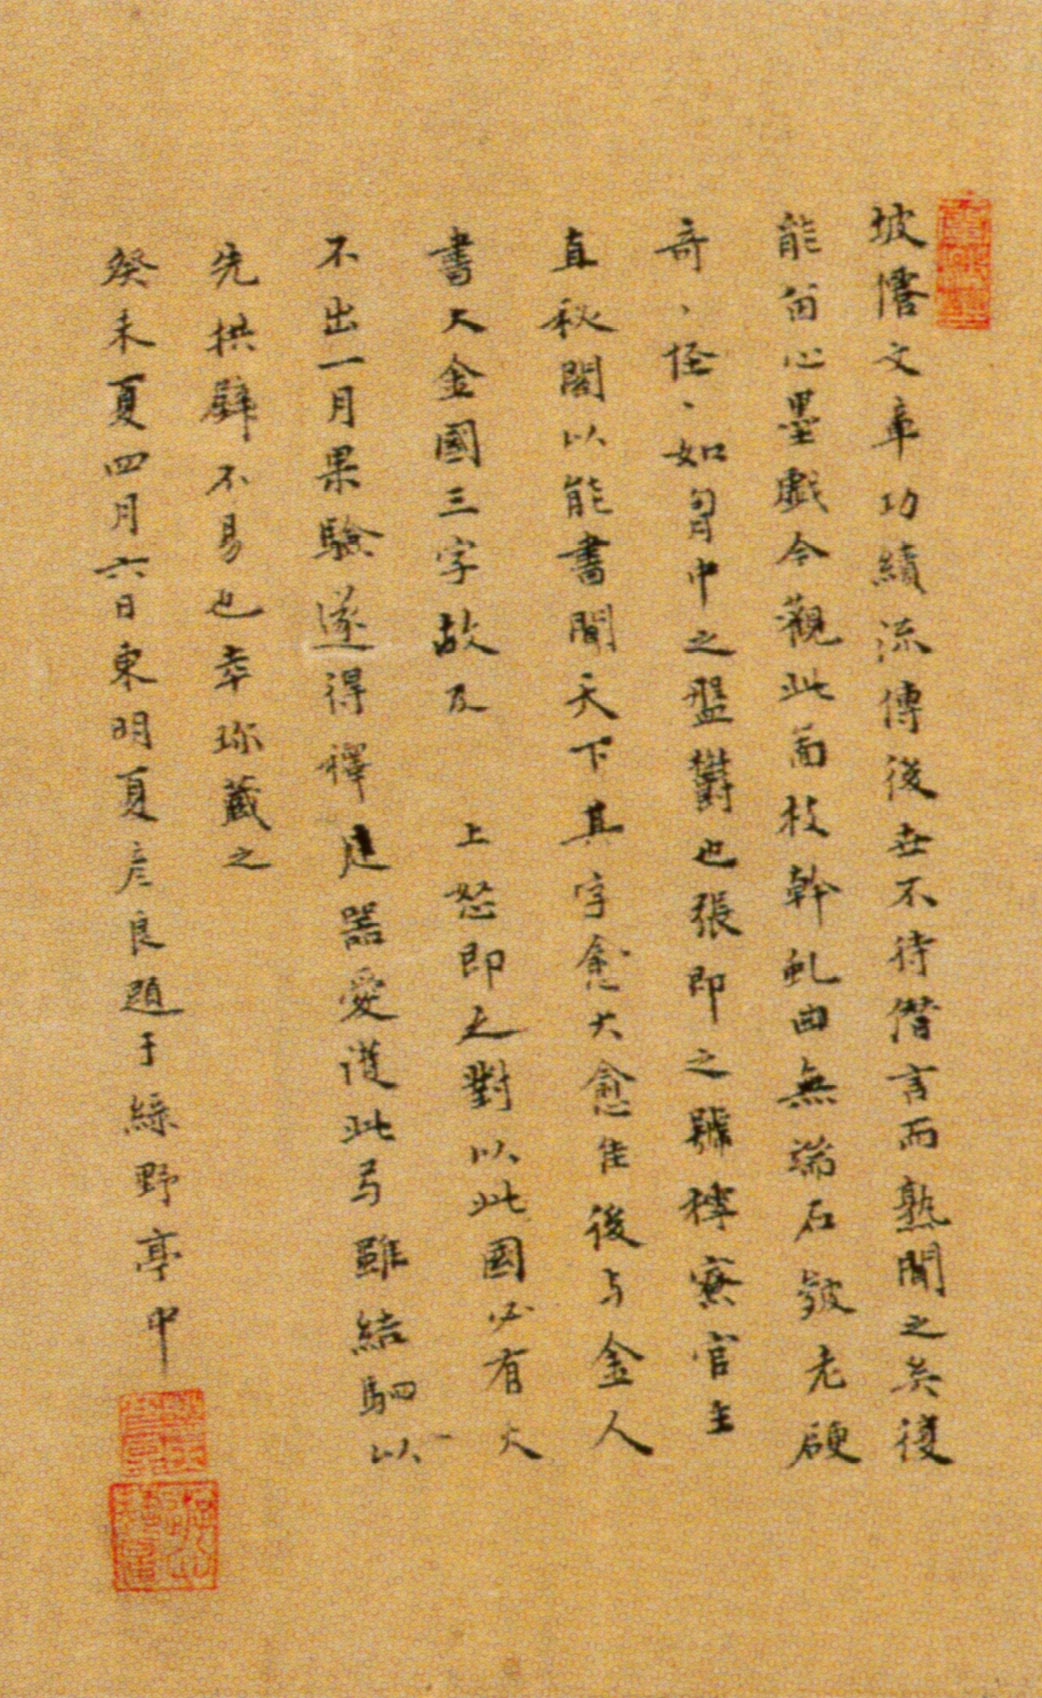 坡僊文章功績流傳後世不待僭言而熟聞之矣復
能留心墨戲今觀此畫枝幹虬曲無端石皴老硬
奇、怪、如胷中之盤欝也張即之號樗寮官主
直秘閣以能書聞天下其字愈大愈佳後与金人
書大金國三字故及 上怒即之對以此國必有大
不出一月果驗遂得釋是器愛道此弓雖結駟以
先拱璧不易也幸珎藏之
癸未夏四月六日東明夏彥良題于綠野亭中